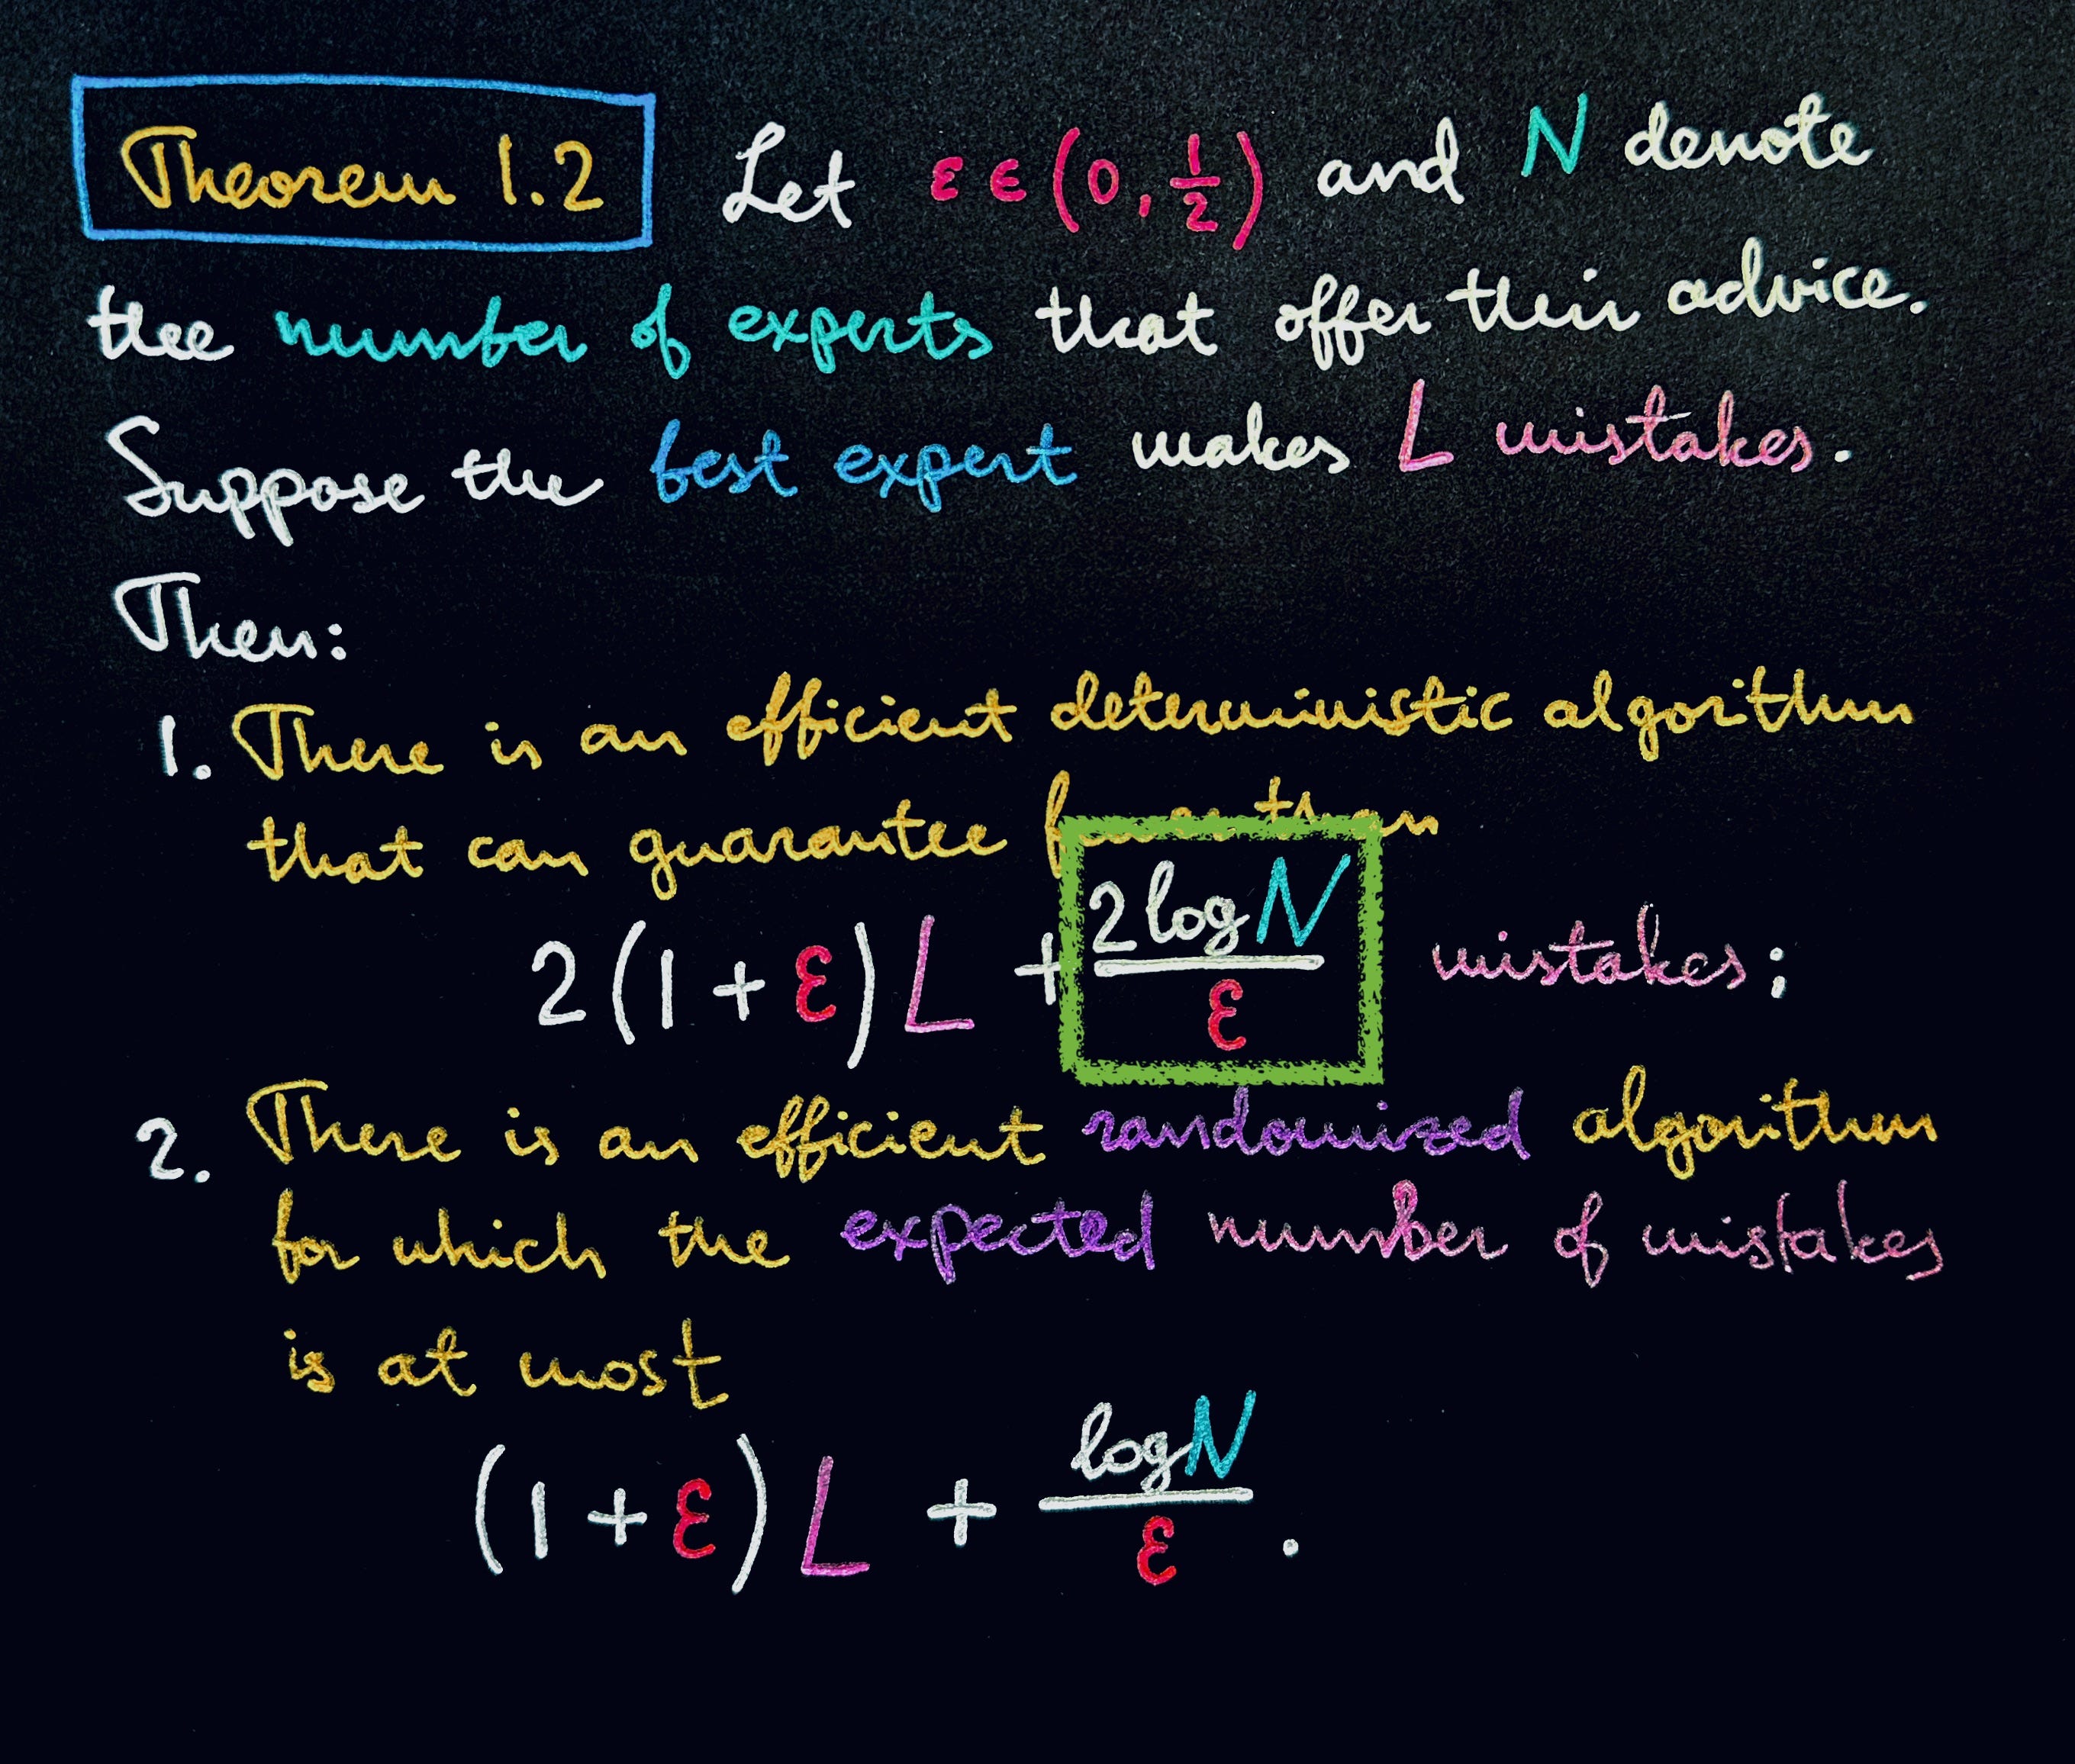 Theorem 1.2 Let ε ∈ (0, 1/2) and N denote
the number of experts that offer their advice.
Suppose the best expert makes L mistakes.
Then:
1. There is an efficient deterministic algorithm
that can guarantee fewer than
2(1 + ε)L + 2 log N / ε mistakes;
2. There is an efficient randomized algorithm
for which the expected number of mistakes
is at most
(1 + ε)L + log N / ε .